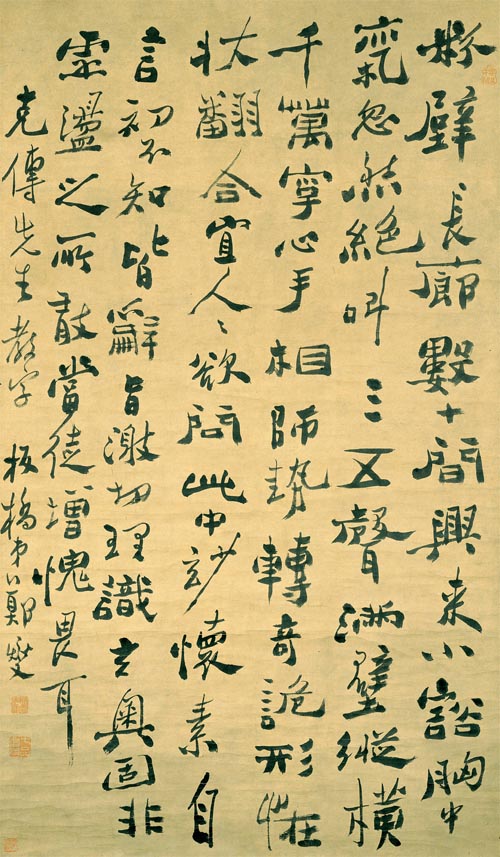 粉壁長廊數十間興來小豁胸中
氣忽然絕叫三五聲滿壁縱橫
千萬字心手相師勢轉奇詭形恠
狀翻合宜人〻欲問此中妙懷素自
言初不知皆辭旨激切理識玄奧固非
虛盪之所敢當徒增愧畏耳
克傳先生教字 板橋弟鄭燮